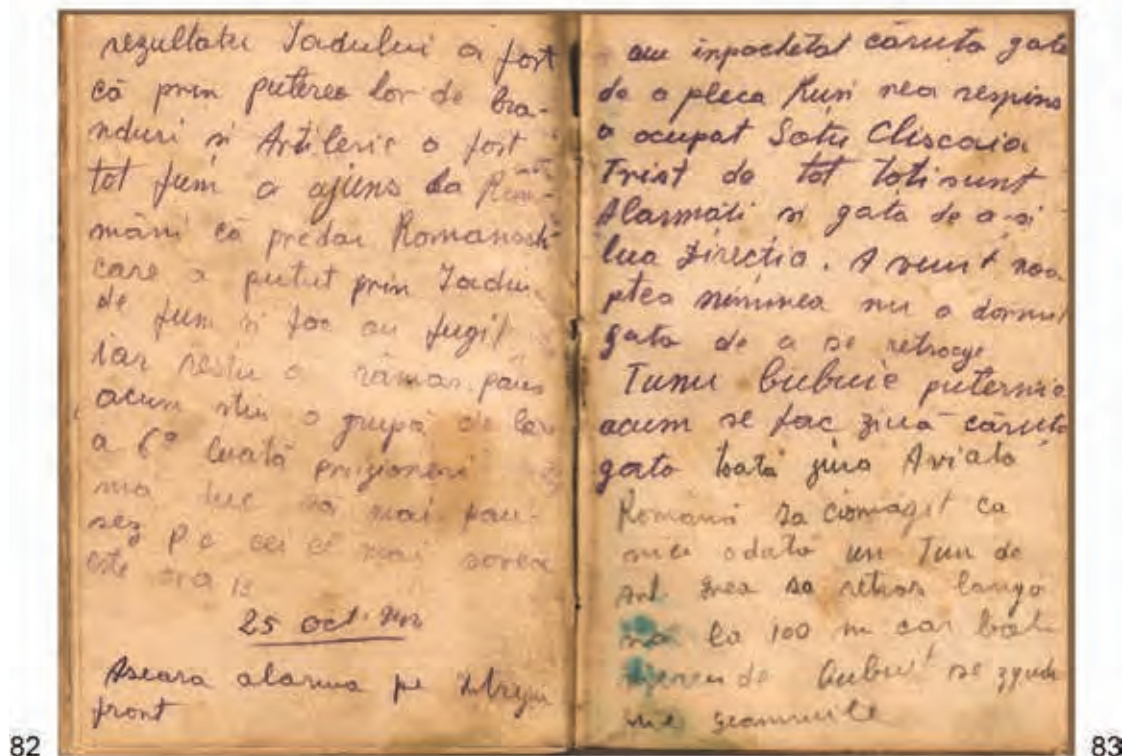 rezultatu Iadului a fost
că prin puterea lor de bra-
nduri si Artilerie a fost
tot fum a ajuns la
mâni că predai
care a putut prin Iadu
de fum si foc au fugit
iar restu a rămas. pâns
acum stiu o grupă de la
a 6ª luată prizonieri
mă duc să mai pau-
sez p c cei că mai
este ora 13
25 oct.
Aseara alarma pe
front
82
au inpachetat căruta gata
de a pleca Rusi nea respins
a ocupat Satu Cliscaia
Trist de tot toti sunt
Alarmati si gata de a-si
lua Directia. A venit noa
ptea nimenea nu a dormit
gata de a se retrage
Tunu bubuie puternic
acum se fac ziuă căruta
gata toată ziua Aviatia
Română sa ciomăgit ca
nici odată un Tun de
Art. grea sa retras langă
noi la 100 m car bate
de bubuit se zgudu
ie geamurile
83